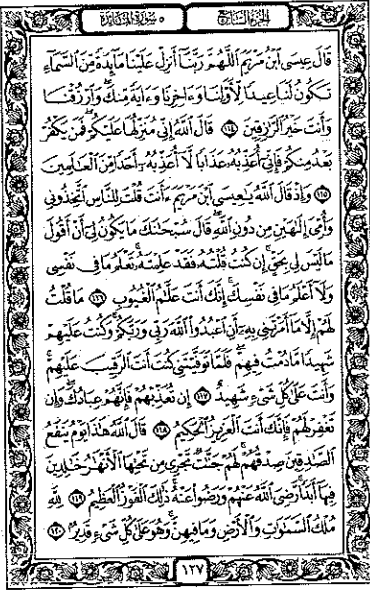 الجزء السابع ٥ سورة المائدة
قَالَ عِيسَى ٱبْنُ مَرْيَمَ ٱللَّهُمَّ رَبَّنَآ أَنزِلْ عَلَيْنَا مَآئِدَةً مِّنَ ٱلسَّمَآءِ
تَكُونُ لَنَا عِيدًا لِّأَوَّلِنَا وَءَاخِرِنَا وَءَايَةً مِّنكَ وَٱرْزُقْنَا
وَأَنتَ خَيْرُ ٱلرَّٰزِقِينَ ١١٤ قَالَ ٱللَّهُ إِنِّى مُنَزِّلُهَا عَلَيْكُمْ فَمَن يَكْفُرْ
بَعْدُ مِنكُمْ فَإِنِّىٓ أُعَذِّبُهُۥ عَذَابًا لَّآ أُعَذِّبُهُۥٓ أَحَدًا مِّنَ ٱلْعَٰلَمِينَ
١١٥ وَإِذْ قَالَ ٱللَّهُ يَٰعِيسَى ٱبْنَ مَرْيَمَ ءَأَنتَ قُلْتَ لِلنَّاسِ ٱتَّخِذُونِى
وَأُمِّىَ إِلَٰهَيْنِ مِن دُونِ ٱللَّهِ قَالَ سُبْحَٰنَكَ مَا يَكُونُ لِىٓ أَنْ أَقُولَ
مَا لَيْسَ لِى بِحَقٍّ إِن كُنتُ قُلْتُهُۥ فَقَدْ عَلِمْتَهُۥ تَعْلَمُ مَا فِى نَفْسِى
وَلَآ أَعْلَمُ مَا فِى نَفْسِكَ إِنَّكَ أَنتَ عَلَّٰمُ ٱلْغُيُوبِ ١١٦ مَا قُلْتُ
لَهُمْ إِلَّا مَآ أَمَرْتَنِى بِهِۦٓ أَنِ ٱعْبُدُوا۟ ٱللَّهَ رَبِّى وَرَبَّكُمْ وَكُنتُ عَلَيْهِمْ
شَهِيدًا مَّا دُمْتُ فِيهِمْ فَلَمَّا تَوَفَّيْتَنِى كُنتَ أَنتَ ٱلرَّقِيبَ عَلَيْهِمْ
وَأَنتَ عَلَىٰ كُلِّ شَىْءٍ شَهِيدٌ ١١٧ إِن تُعَذِّبْهُمْ فَإِنَّهُمْ عِبَادُكَ وَإِن
تَغْفِرْ لَهُمْ فَإِنَّكَ أَنتَ ٱلْعَزِيزُ ٱلْحَكِيمُ ١١٨ قَالَ ٱللَّهُ هَٰذَا يَوْمُ يَنفَعُ
ٱلصَّٰدِقِينَ صِدْقُهُمْ لَهُمْ جَنَّٰتٌ تَجْرِى مِن تَحْتِهَا ٱلْأَنْهَٰرُ خَٰلِدِينَ
فِيهَآ أَبَدًا رَّضِىَ ٱللَّهُ عَنْهُمْ وَرَضُوا۟ عَنْهُ ذَٰلِكَ ٱلْفَوْزُ ٱلْعَظِيمُ ١١٩ لِلَّهِ
مُلْكُ ٱلسَّمَٰوَٰتِ وَٱلْأَرْضِ وَمَا فِيهِنَّ وَهُوَ عَلَىٰ كُلِّ شَىْءٍ قَدِيرٌۢ ١٢٠
١٢٧